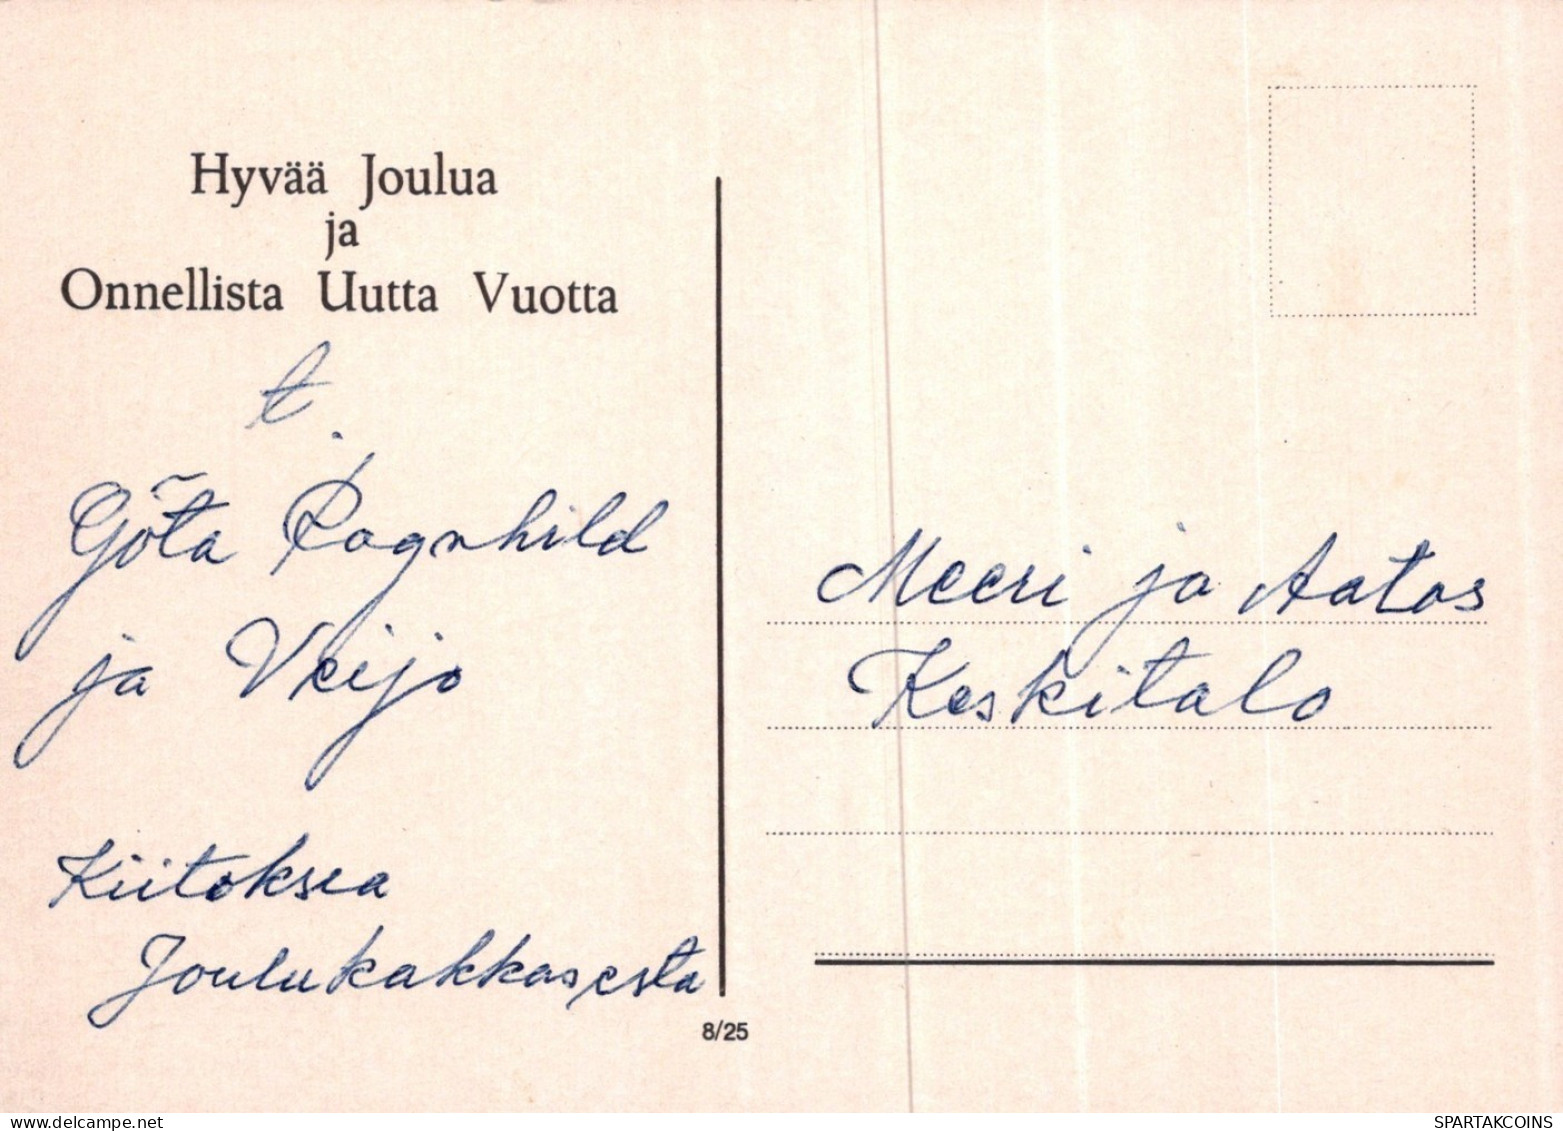 Hyvää Joulua
ja
Onnellista Uutta Vuotta
t.
Göta Ragnhild
ja Veijo
Kiitoksea
Joulukakkasesta
8/25
Meeri ja Aatos
Keskitalo
delcampe.net
SPARTAKCOINS